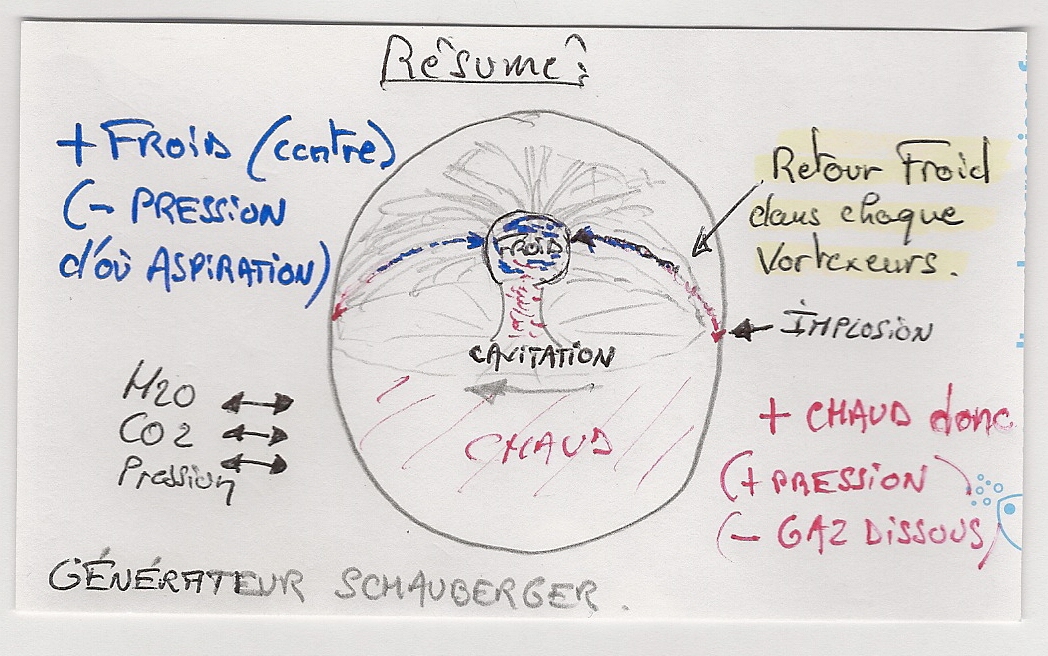 Résumé:
+ FROID (centre)
(- PRESSION
d'où ASPIRATION)
Retour Froid
dans chaque
Vortexeurs.
FROID
IMPLOSION
CAVITATION
H2O
CO2
Pression
CHAUD
+ CHAUD donc
(+ PRESSION)
(- GAZ DISSOUS)
GÉNÉRATEUR SCHAUBERGER.